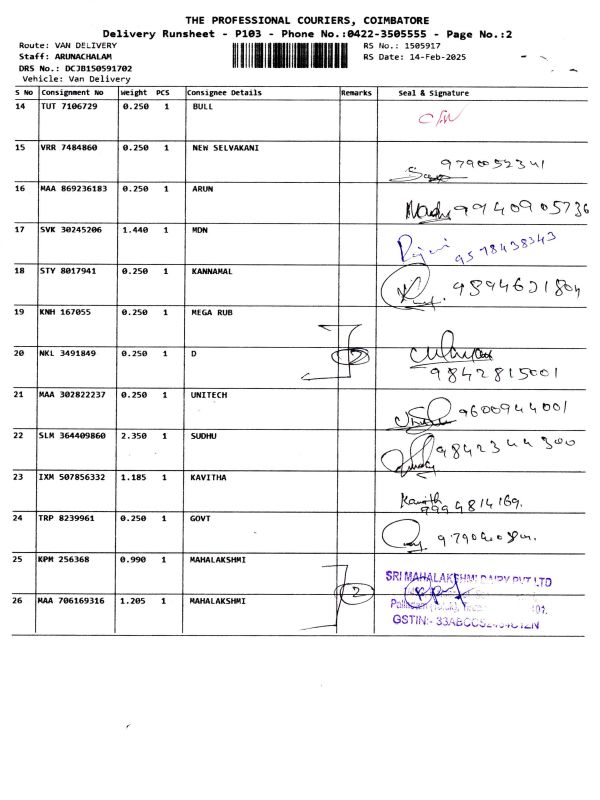 THE PROFESSIONAL COURIERS, COIMBATORE
Delivery Runsheet - P103 - Phone No.:0422-3505555 - Page No.:2
Route: VAN DELIVERY RS No.: 1505917
Staff: ARUNACHALAM RS Date: 14-Feb-2025
DRS No.: DCJB150591702
Vehicle: Van Delivery
S No Consignment No Weight PCS Consignee Details Remarks Seal & Signature
14 TUT 7106729 0.250 1 BULL
15 VRR 7484860 0.250 1 NEW SELVAKANI 9790052341
16 MAA 869236183 0.250 1 ARUN 9940905736
17 SVK 30245206 1.440 1 MDN 9578438343
18 STY 8017941 0.250 1 KANNAMAL
19 KNH 167055 0.250 1 MEGA RUB
20 NKL 3491849 0.250 1 D 2
9842815001
21 MAA 302822237 0.250 1 UNITECH 9600944001
22 SLM 364409860 2.350 1 SUDHU 9842344300
23 IXM 507856332 1.185 1 KAVITHA Kavitha
24 TRP 8239961 0.250 1 GOVT
25 KPM 256368 0.990 1 MAHALAKSHMI SRI MAHALAKSHMI DAIRY PVT LTD
2
26 MAA 706169316 1.205 1 MAHALAKSHMI
GSTIN:-